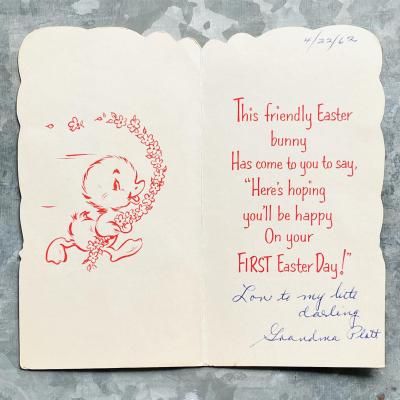 4/22/62
This friendly Easter
bunny
Has come to you to say,
"Here's hoping
you'll be happy
On your
FIRST Easter Day!"
Love to my little
darling
Grandma Platt